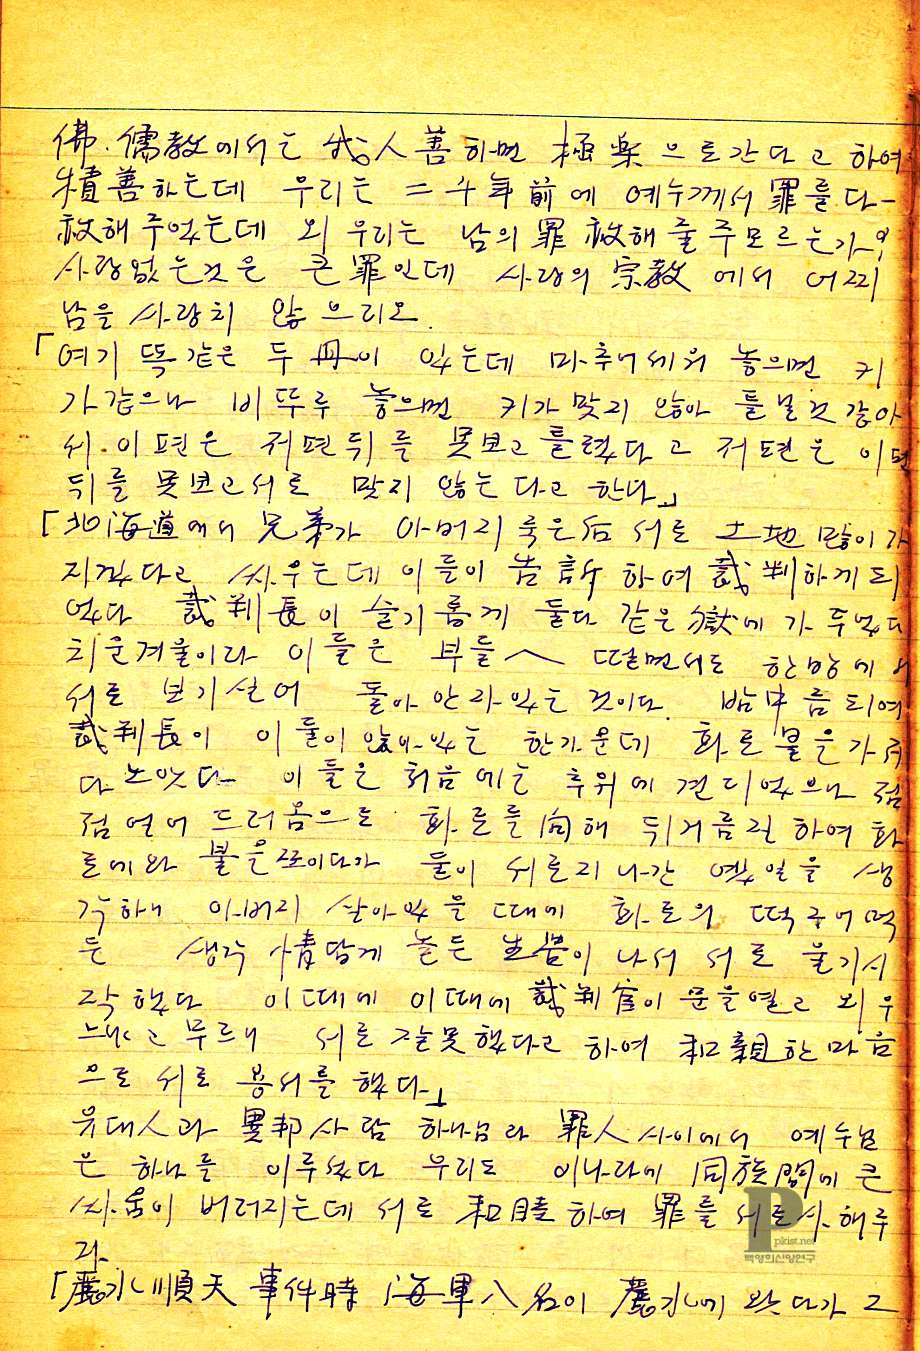 佛.儒教에서는 我人善하면 極楽으로간다고 하여
積善하는데 우리는 二千年前에 예수께서 罪를다
赦해주었는데 외 우리는 남의罪 赦해줄주모르는가?
사랑없는것은 큰罪인데 사랑의宗教에서 어찌
남을 사랑치 않으리오.
「여기 똑같은 두冊이 있는데 마추어세워 놓으면 키
가같으나 비뚜루 놓으면 키가맞지 않아 틀닐것 같아
서.이편은 저편뒤를 못보고틀렸다고 저편은 이편
뒤를 못보고서로 맞지 않는다고 한다」
「北海道에서 兄弟가 아버지죽은后 서로 土地많이가
지겠다고 싸우는데 이들이 告訴하여 裁判하게되
었다 裁判長이 슬기롭게 둘다 같은獄에 가두었다
치운겨울이라 이들은 부들へ 떨면서도 한방에서
서로 보기실어 돌아안자있는 것이다. 밤中쯤되여
裁判長이 이들이 앉아있는 한가운데 화로불을가져
다노앗다 이들은 처음에는 추위에 견디었으나 점
점 얼어 드러옴으로 화로를向해 뒤거름질하여 화
로에와 불을쪼이다가 둘이 서로지나간 옛일을 생
각하니 아버지 살아있을 때에 화로의 떡구어먹
든 생각 情답게 놀든 生覺이 나서 서로 울기시
작했다 이때에 이때에 裁判官이 문을열고 외우
느냐고 무르니 서로 잘못했다고 하여 和親한마음
으로 서로 용서를 했다」
유대人과 異邦사람 하나님과 罪人사이에서 예수님
은 하나를 이루셨다 우리도 이나라에 同族間에 큰
싸움이 버러지는데 서로 和睦하여 罪를 서로사해주
자.
「麗水順天事件時 海軍八名이 麗水에 왔다가 그
pkist.net
백영희신앙연구